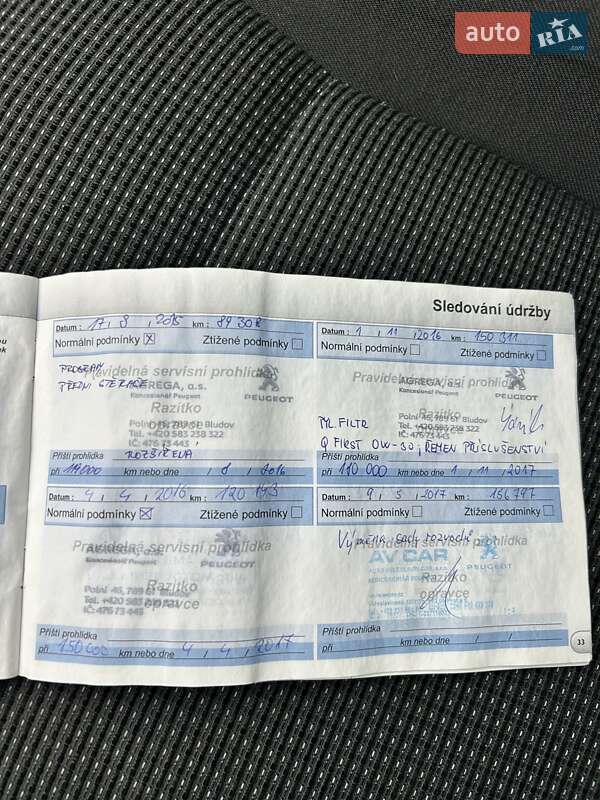 auto RIA .com
Sledování údržby
Datum : 17 / 8 / 2015 km : 89 302
Normální podmínky Ztížené podmínky
PROGRAM
PŘEDNÍ STĚRAČE
Pravidelná servisní prohlídka
AGREGA, a.s.
Koncesionář Peugeot
PEUGEOT
Razítko
Polní 46, 789 61 Bludov
Tel. +420 583 238 322
IČ: 476 73 443
ROZBITELA
Příští prohlídka
při km nebo dne / 8 / 2016
Datum : 1 / 11 / 2016 km : 150 311
Normální podmínky Ztížené podmínky
Pravidelná servisní prohlídka
AGREGA, a.s.
Koncesionář Peugeot
PEUGEOT
Razítko
Polní 46, 789 61 Bludov
Tel. +420 583 238 322
IČ: 476 73 443
FILTR
Q FIRST 0W-30, ŘEMEN PŘÍSLUŠENSTVÍ
Příští prohlídka
při 110 000 km nebo dne 1 / 11 / 2017
Datum : 4 / 4 / 2016 km : 120 193
Normální podmínky Ztížené podmínky
Pravidelná servisní prohlídka
AGREGA, a.s.
Koncesionář Peugeot
PEUGEOT
Razítko
opravce
Polní 46, 789 61 Bludov
IČ: 476 73 443
Příští prohlídka
při 150 000 km nebo dne 4 / 4 / 2017
Datum : 9 / 5 / 2017 km : 156 797
Normální podmínky Ztížené podmínky
Výměna sady rozvodů
Pravidelná servisní prohlídka
AV CAR
PEUGEOT
Razítko
opravce
Příští prohlídka
při km nebo dne / /
33